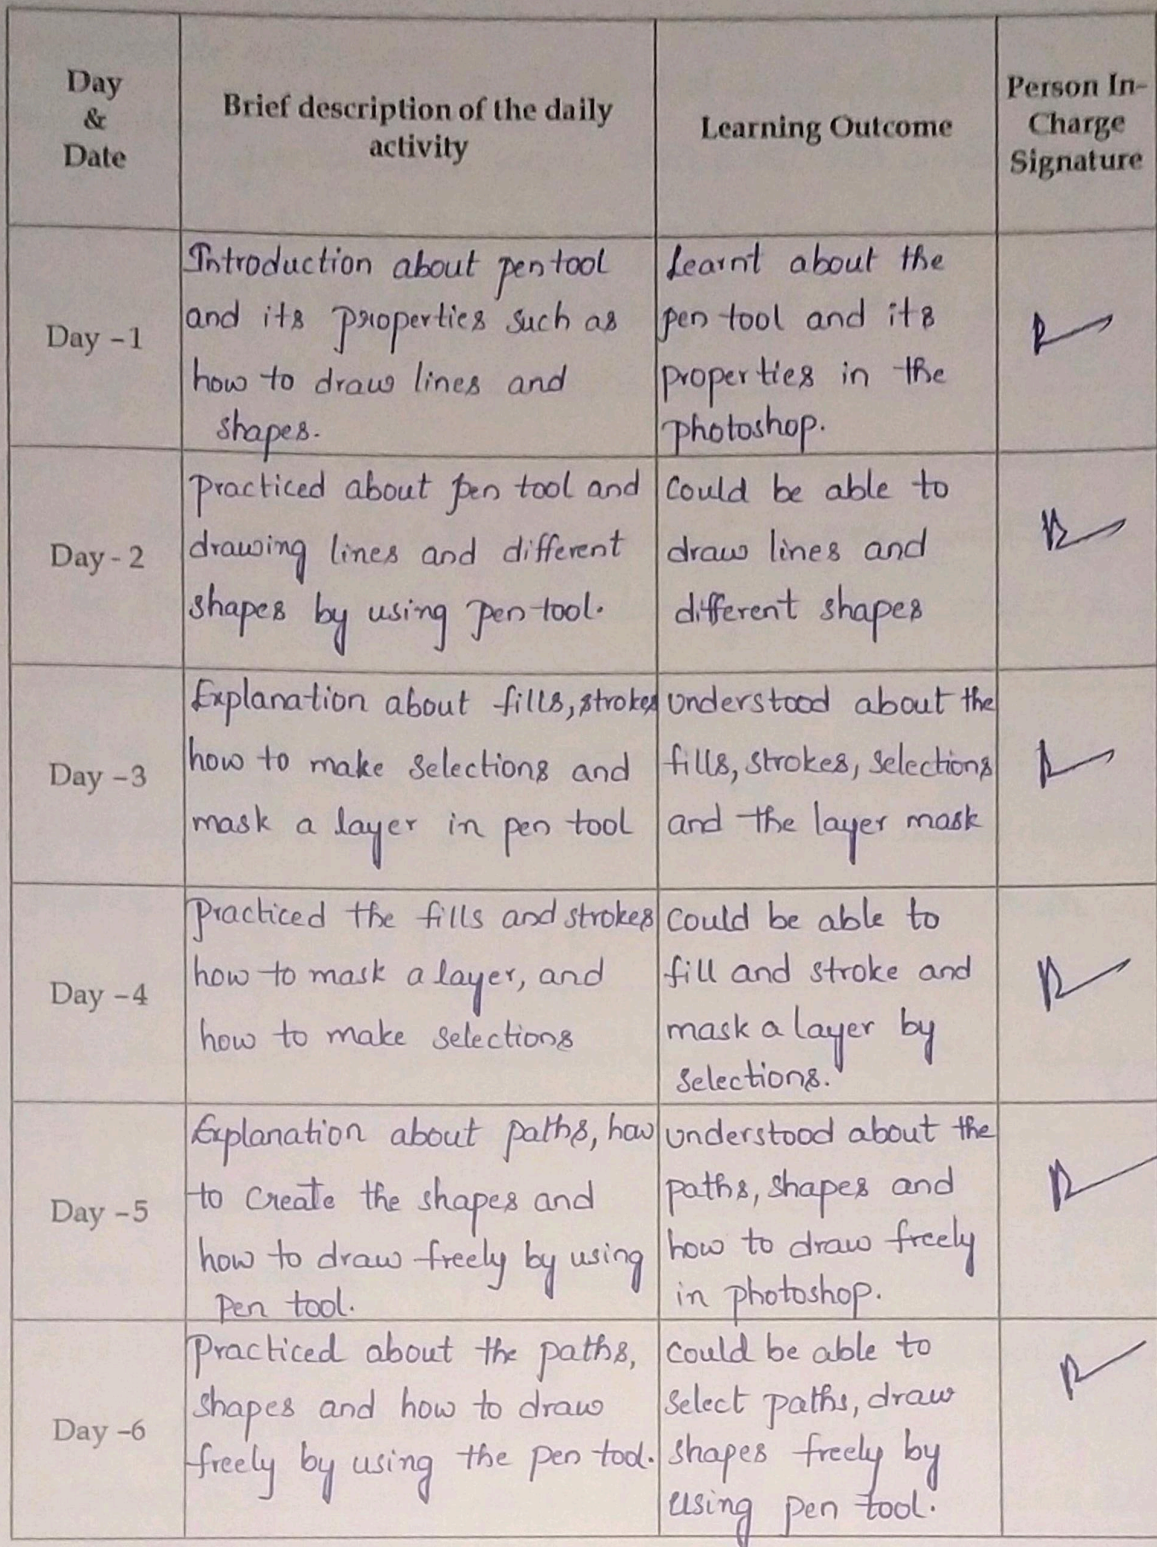 Day
&
Date
Brief description of the daily
activity
Learning Outcome
Person In-
Charge
Signature
Day -1
Introduction about pen tool
and its properties such as
how to draw lines and
shapes.
Learnt about the
pen tool and its
properties in the
photoshop.
Day - 2
practiced about pen tool and
drawing lines and different
shapes by using pen tool.
Could be able to
draw lines and
different shapes
Day -3
Explanation about fills, strokes
how to make selections and
mask a layer in pen tool
understood about the
fills, strokes, selections
and the layer mask
Day -4
Practiced the fills and strokes
how to mask a layer, and
how to make selections
could be able to
fill and stroke and
mask a layer by
selections.
Day -5
Explanation about paths, how
to create the shapes and
how to draw freely by using
pen tool.
understood about the
paths, shapes and
how to draw freely
in photoshop.
Day -6
Practiced about the paths,
shapes and how to draw
freely by using the pen tool.
could be able to
select paths, draw
shapes freely by
using pen tool.